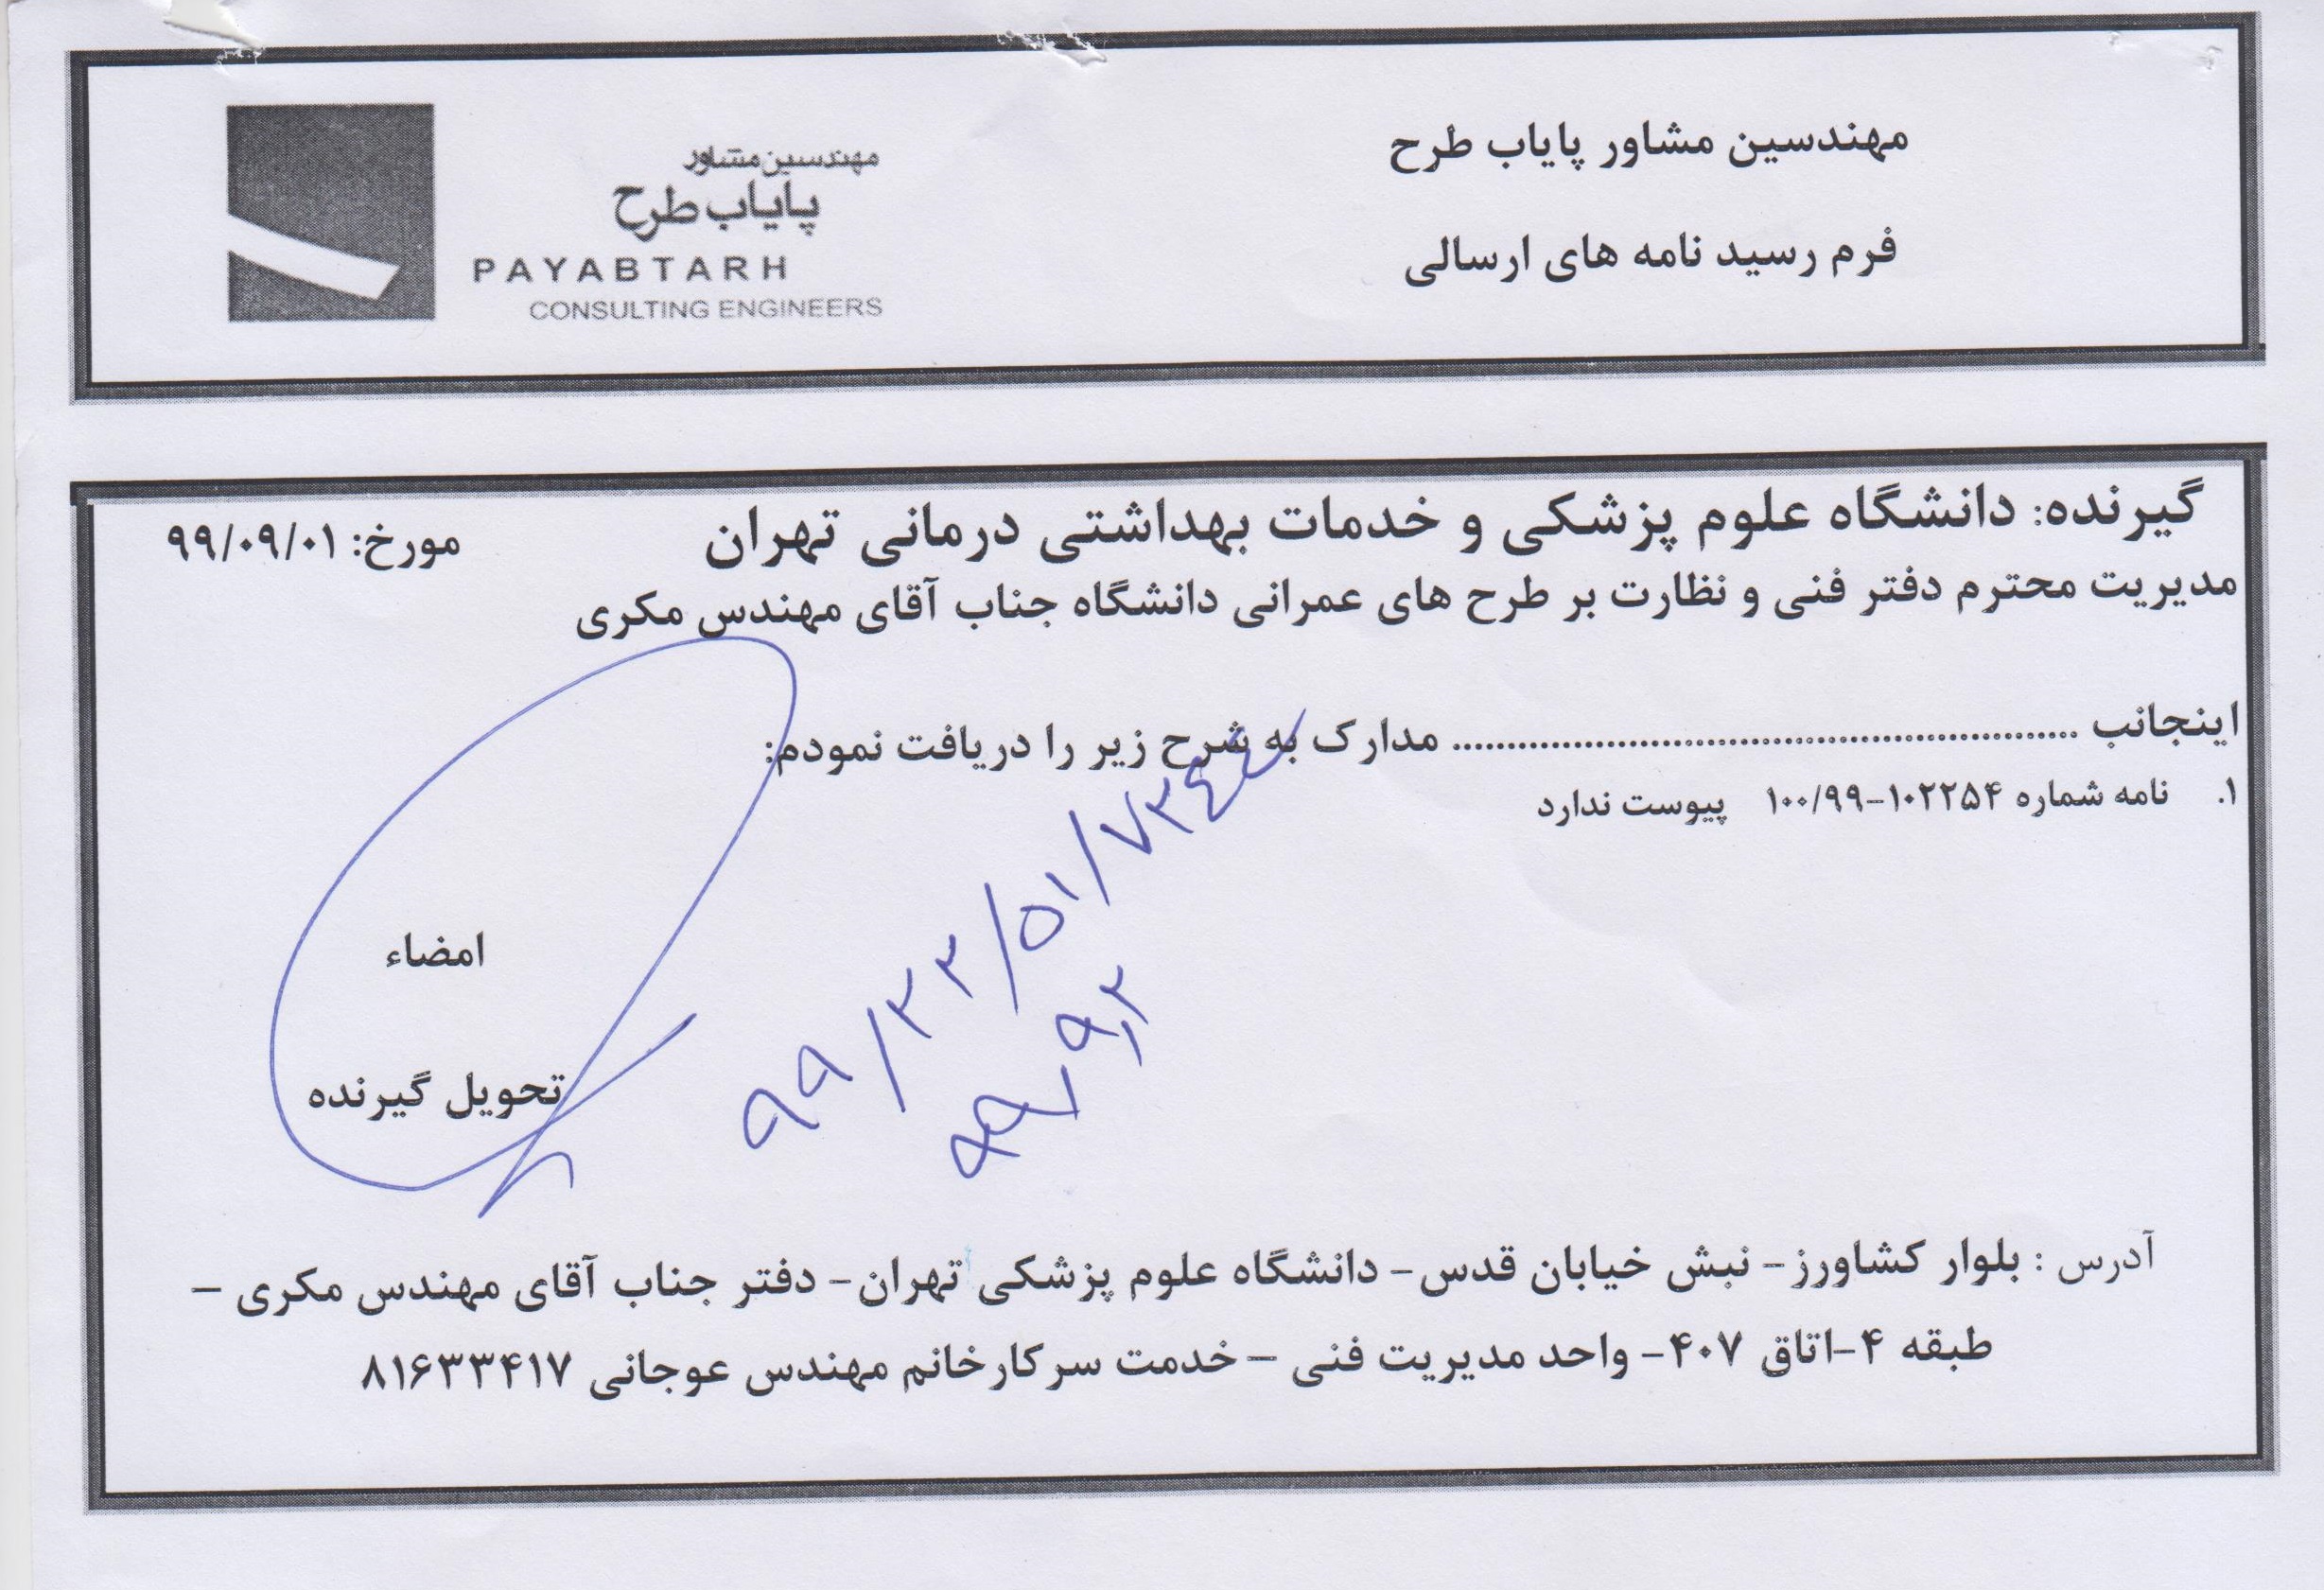 مهندسین مشاور پایاب طرح
فرم رسید نامه های ارسالی
مهندسین مشاور
پایاب طرح
PAYABTARH
CONSULTING ENGINEERS
گیرنده: دانشگاه علوم پزشکی و خدمات بهداشتی درمانی تهران
مورخ: ۹۹/۰۹/۰۱
مدیریت محترم دفتر فنی و نظارت بر طرح های عمرانی دانشگاه جناب آقای مهندس مکری
اینجانب ........................................................ مدارک به شرح زیر را دریافت نمودم:
۱. نامه شماره ۱۰۲۲۵۴-۱۰۰/۹۹ پیوست ندارد
۹۹/۲۳/۵۱/۷۳۴۴
۹۹/۹/۲
امضاء
تحویل گیرنده
آدرس : بلوار کشاورز- نبش خیابان قدس- دانشگاه علوم پزشکی تهران- دفتر جناب آقای مهندس مکری –
طبقه ۴-اتاق ۴۰۷- واحد مدیریت فنی – خدمت سرکارخانم مهندس عوجانی ۸۱۶۳۳۴۱۷